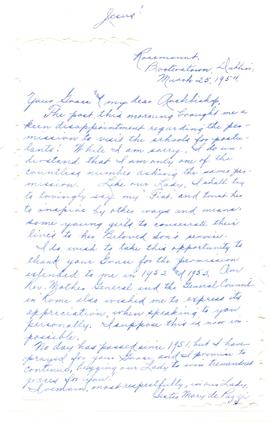 Jesus!
Rosemount,
Booterstown, Dublin,
March 25, 1954
Your Grace & my dear Archbishop,
The post this morning brought me a
keen disappointment regarding the per-
mission to visit the schools for postu-
lants! While I am sorry, I do un-
derstand that I am only one of the
countless number asking the same per-
mission. Like our Lady, I shall try
to lovingly say my Fiat, and trust her
to inspire by other ways and means
some young girls to consecrate their
lives to her Beloved Son's service.
I do wish to take this opportunity to
thank your Grace for the permission
extended to me in 1952 & 1953. Our
Rev. Mother General and the General Council
in Rome also wished me to express its
appreciation, when speaking to you
personally. I suppose this is now im-
possible.
No day has passed since 1951, but I have
prayed for your Grace, and I promise to
continue, begging our Lady to win tremendous
graces for you.
I remain, most respectfully, in our Lady,
Sister Mary de Pazzi